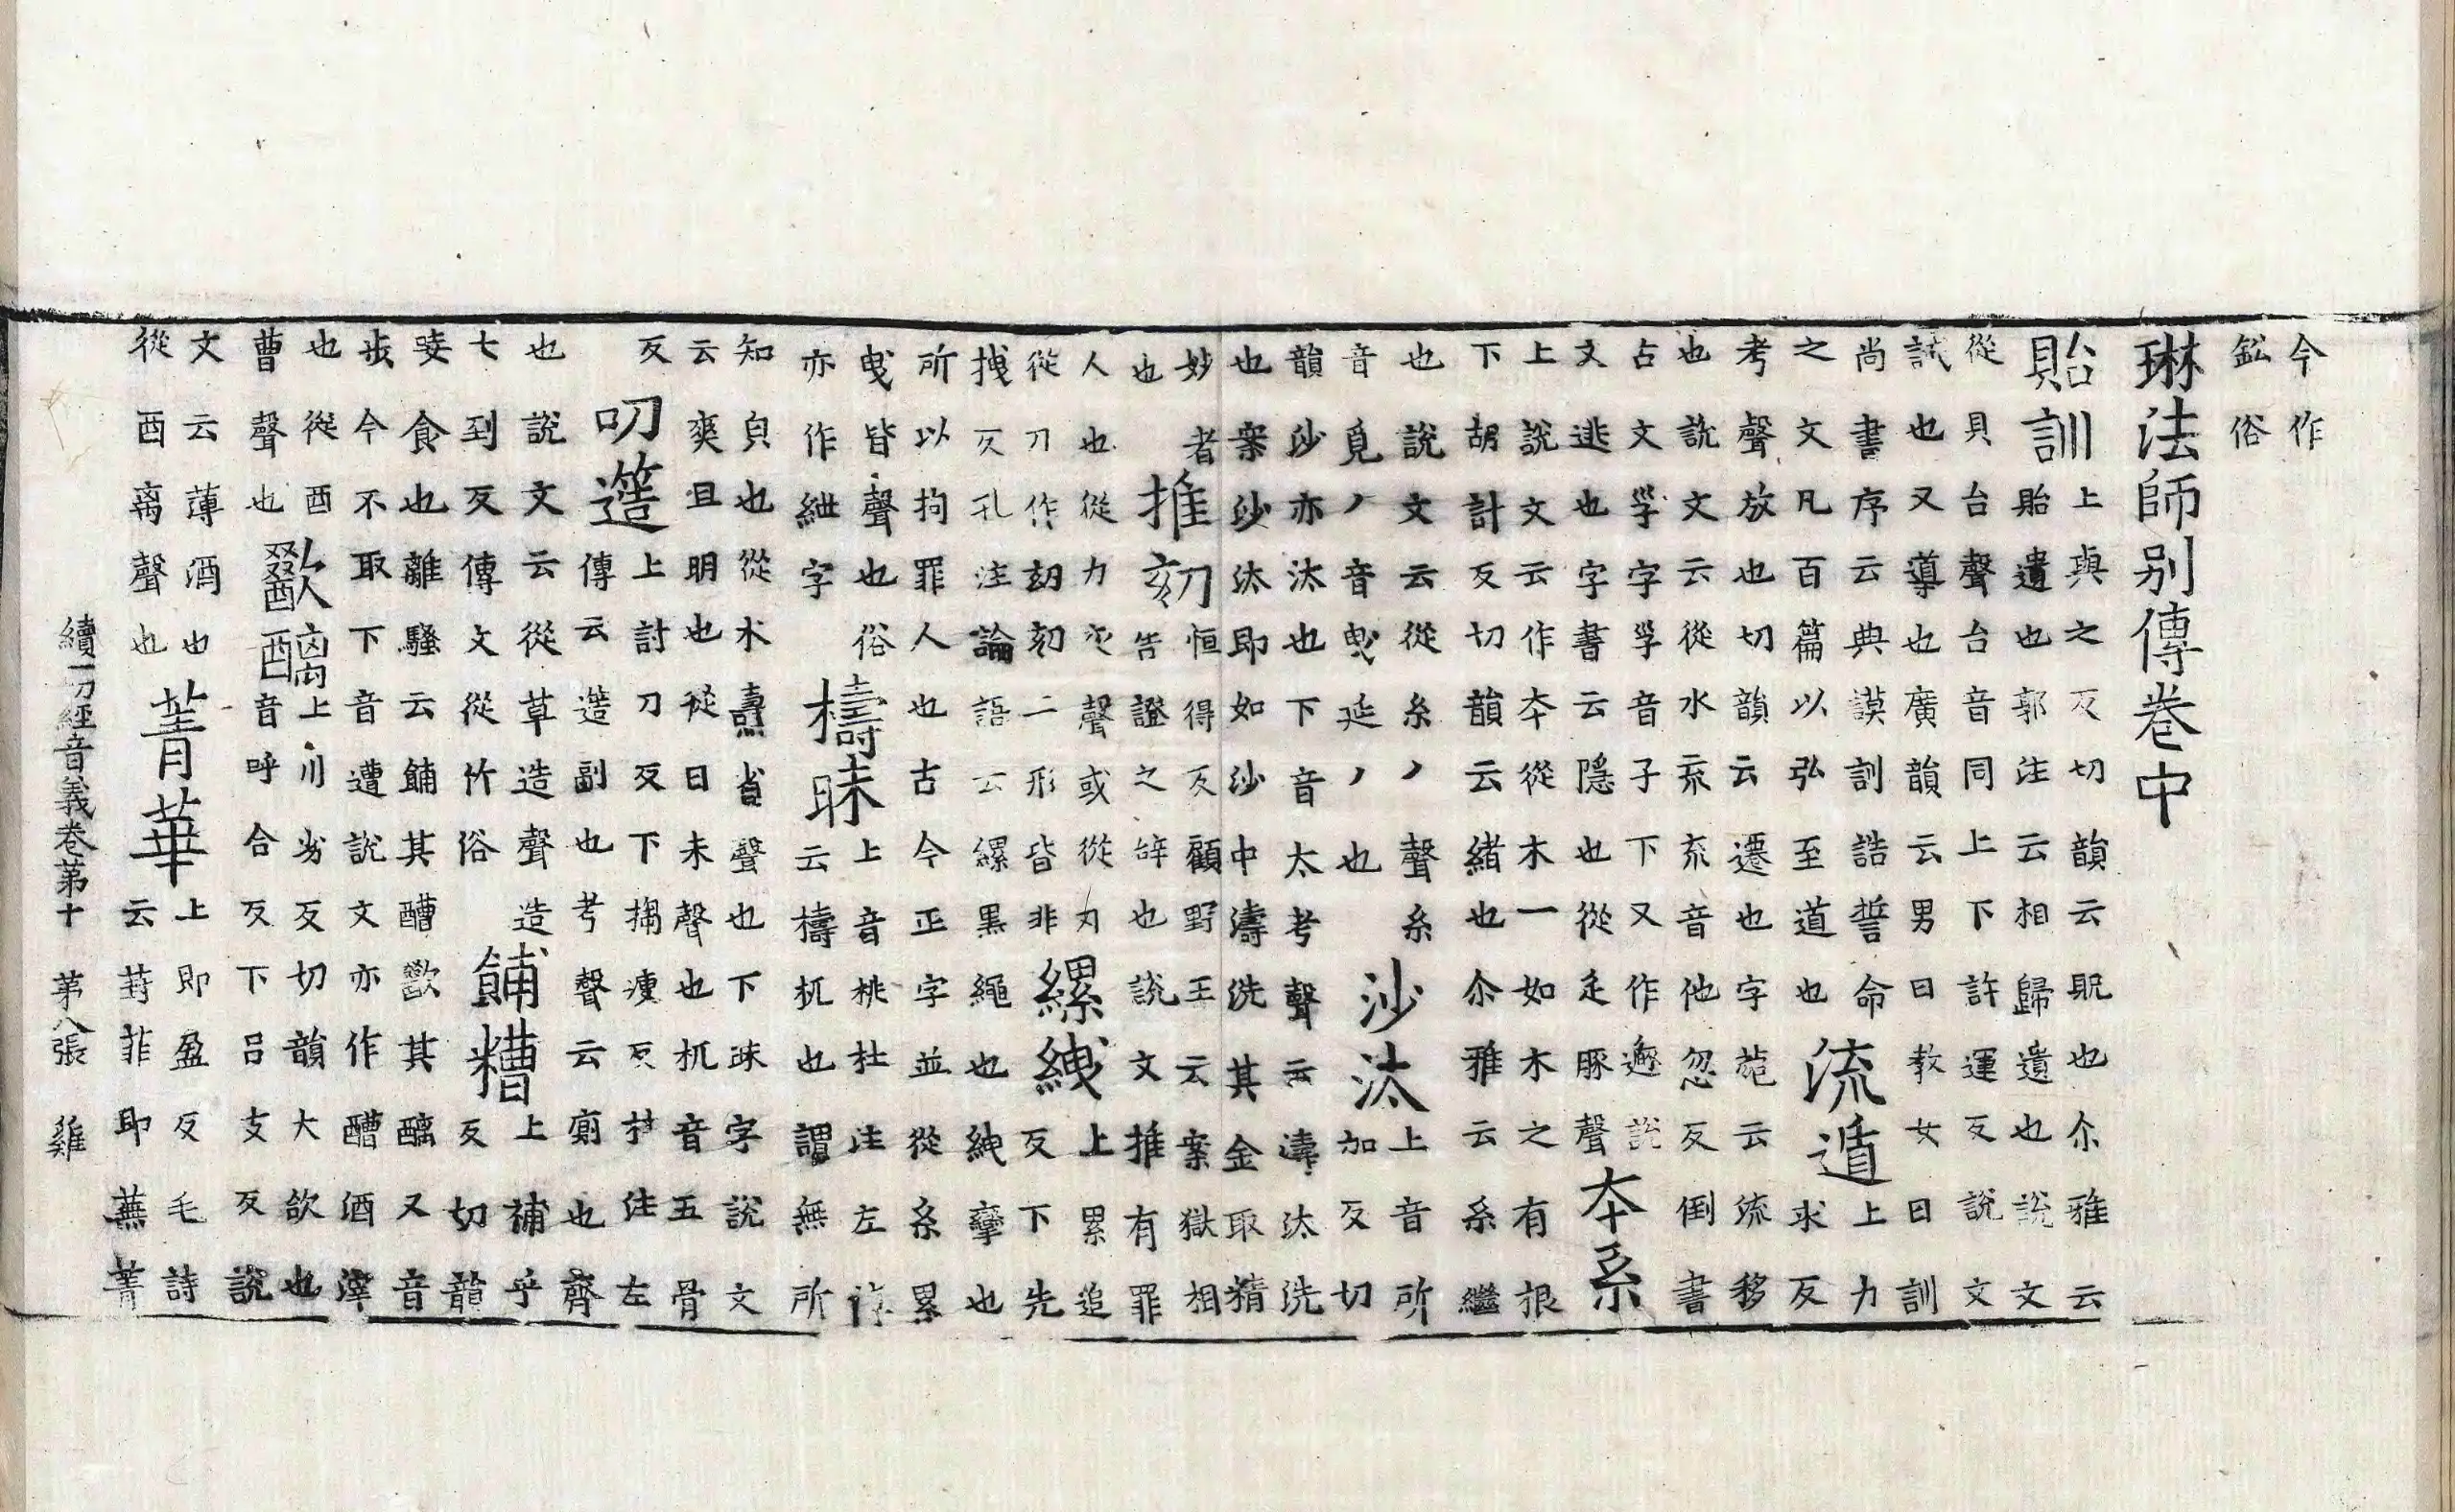 今作
鉛俗
琳法師別傳卷中
貽訓
上與之反切韻云貺也尒雅云
貽遺也郭注云相歸遺也說文
從貝台聲台音同上下許運反說文
試也又導也廣韻云男曰教女曰訓
尚書序云典謨訓誥誓命
之文凡百篇以弘至道也
流遁
上力
求反
考聲放也切韻云遷也字菀云流移
也說文云從水㐬㐬音他忽反倒書
古文㜽字㜽音子下又作遯說
文逃也字書云隱也從辵豚聲
夲系
上說文云作夲從木一如木之有根
下胡計反切韻云緒也尒雅云系繼
也說文云從糸丿聲糸
音覓丿音曳延丿也
沙汰
上音所
加反切
韻沙亦汰也下音太考聲云濤汰洗
也案沙汰即如沙中濤洗其金取精
妙者
也
推劾
恒得反顧野王云案獄相
告證之辝也說文推有罪
人也從力亥聲或從刃
從刀作刻刻二形皆非
縲絏
上累追
反下先
拽反孔注論語云縲黑繩也絏攣也
所以拘罪人也古今正字並從糸累
曳皆聲也俗
亦作紲字
檮昧
上音桃杜注左傳
云檮杌也謂無所
知皃也從木壽省聲也下昧字說文
云爽旦明也從日未聲也杌音五骨
反
叨簉
上討刀反下搊瘦反杜注左
傳云簉副也考聲云廁也齊
也說文云從草造聲造
七到反傳文從竹俗
餔糟
上補乎
反切韻
云食也離騷云餔其醩歠其醨又音
步今不取下音遭說文亦作醩酒滓
也從酉
曹聲也
歠醨
上川劣反切韻大飲也
音呼合反下呂支反說
文云薄酒也
從酉离聲也
菁華
上即盈反毛詩
云葑菲即蕪菁
續一切經音義卷第十　第八張　雞